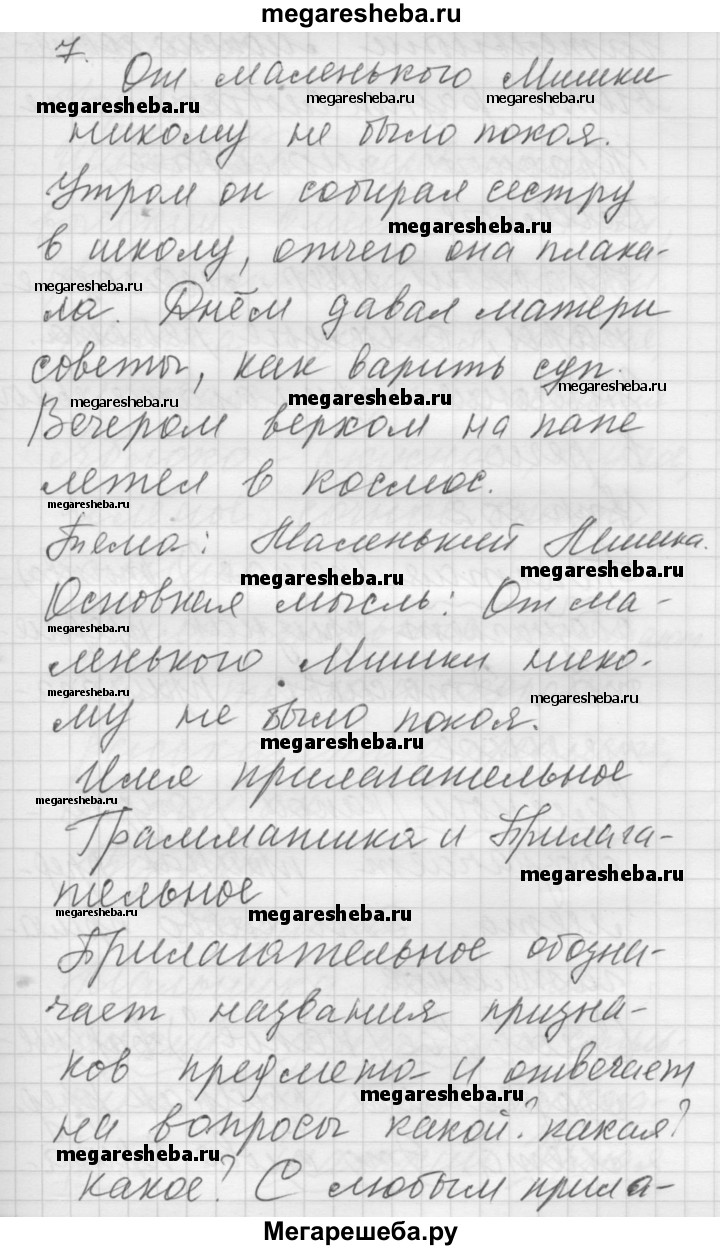 megaresheba.ru
7.
От маленького Мишки
megaresheba.ru megaresheba.ru megaresheba.ru
никому не было покоя.
Утром он собирал сестру
megaresheba.ru
в школу, отчего она плака-
megaresheba.ru
ла. Днём давал матери
советы, как варить суп.
megaresheba.ru megaresheba.ru megaresheba.ru
Вечером верхом на папе
летел в космос.
megaresheba.ru
Тема: Маленький Мишка.
megaresheba.ru megaresheba.ru
Основная мысль: От ма-
megaresheba.ru
ленького Мишки нико-
megaresheba.ru megaresheba.ru
му не было покоя.
megaresheba.ru
Имя прилагательное
megaresheba.ru
Грамматика и Прилага-
megaresheba.ru
тельное
megaresheba.ru megaresheba.ru
Прилагательное обозна-
чает названия призна-
ков предмета и отвечает
megaresheba.ru
на вопросы какой? какая?
megaresheba.ru
какое? С любым прила-
Мегарешеба.ру